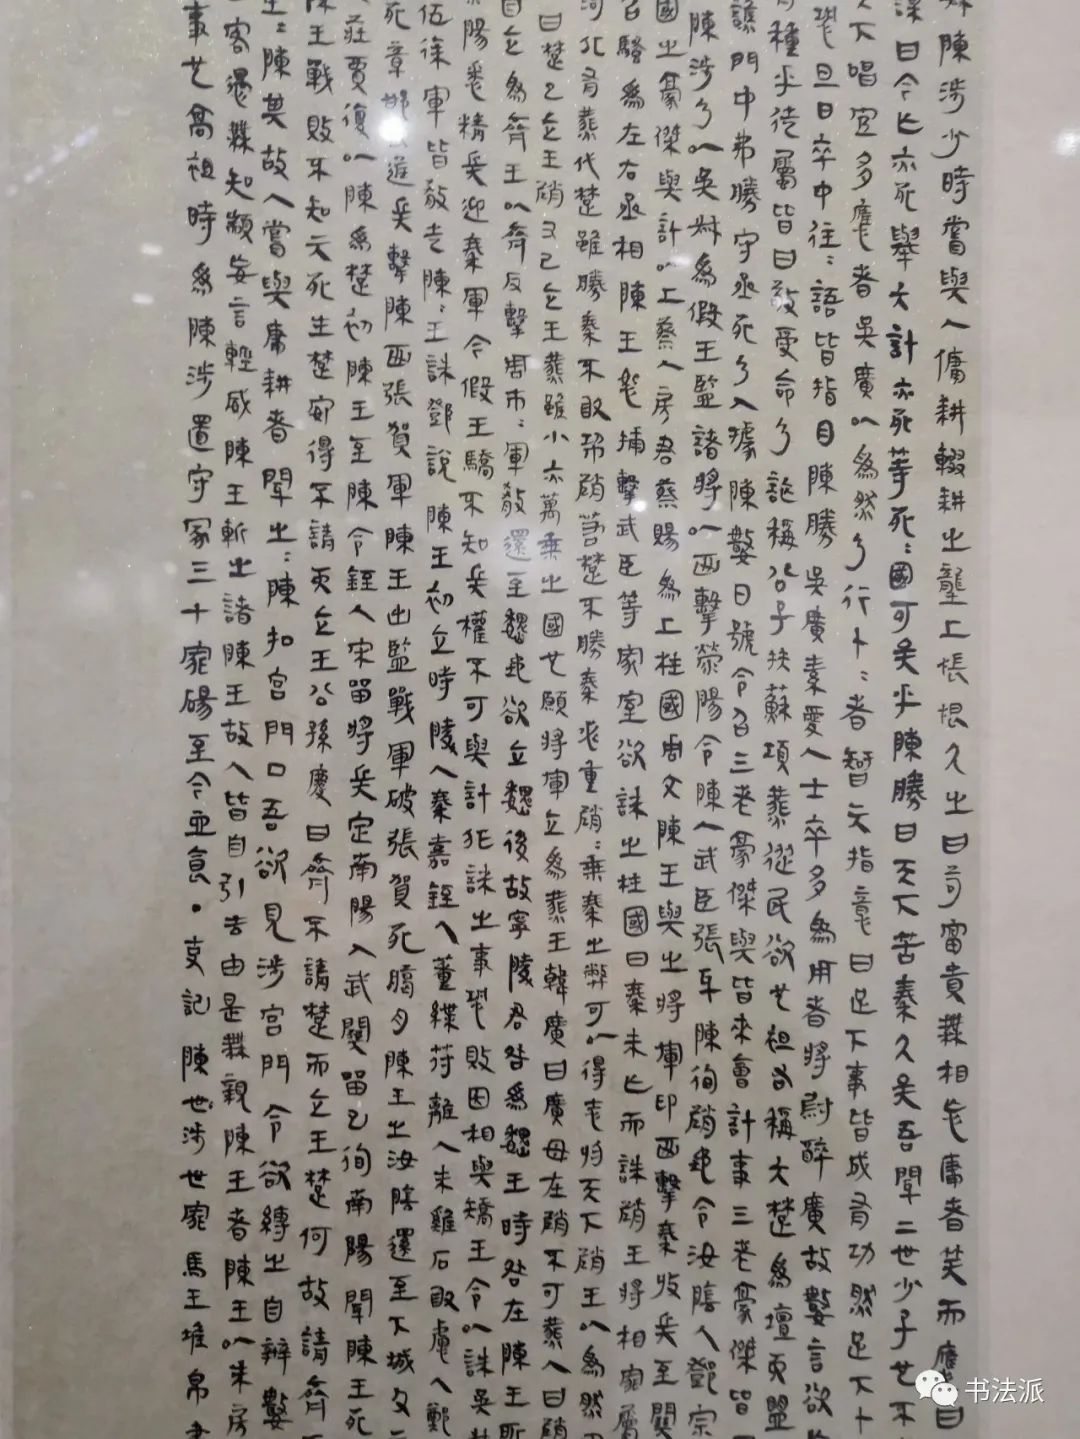 陳涉少時嘗與人傭耕輟耕之壟上悵恨久之曰苟富貴無相忘庸者笑而應曰
謀曰今亡亦死舉大計亦死等死：國可矣乎陳勝曰天下苦秦久矣吾聞二世少子也不
天下唱宜多應者吳廣以為然乃行卜：者智其指意曰足下事皆成有功然足下卜
恐旦日卒中往：語皆指目陳勝吳廣素愛人士卒多為用者將尉醉廣故數言欲
有種乎徒屬皆曰敬受命乃詐稱公子扶蘇項燕從民欲也袒右稱大楚為壇而盟
譙門中弗勝守丞死乃入據陳數日號令召三老豪傑與皆來會計事三老豪傑皆
陳涉乃以吳叔為假王監諸將以西擊滎陽令陳人武臣張耳陳徇趙令汝陰人鄧宗
國之豪傑與計以上蔡人房君蔡賜為上柱國周文陳王與之將軍印西擊秦收兵至關
召騷為左右丞相陳王捕擊武臣等家室欲誅之柱國曰秦未亡而誅趙王將相家屬
河北有燕代楚雖勝秦不敢制趙若楚不勝秦必重趙：乘秦之弊可以得志於天下趙王以為然
曰楚已立王趙又已立王燕雖小亦萬乘之國也願將軍立為燕王韓廣曰廣母在趙不可燕人曰趙
自立為齊王以齊反擊周市：軍散還至魏地欲立魏後故寧陵君咎為魏王時咎在陳王所
陽悉精兵迎秦軍今假王驕不知兵權不可與計非誅之事恐敗因相與矯王令以誅吳叔
伍徐軍皆散走陳：王誅鄧說陳王初立時陵人秦嘉銍人董緤符離人朱雞石取慮人鄭
死章邯進兵擊陳西張賀軍陳王出監戰軍破張賀死臘月陳王之汝陰還至下城父
莊賈復以陳為楚初陳王至陳令銍人宋留將兵定南陽入武關留已徇南陽聞陳王死
陳王戰敗不知其死生楚安得不請而立王公孫慶曰齊不請楚而立王楚何故請齊
王：陳其故人嘗與庸耕者聞之：陳扣宮門曰吾欲見涉宮門令欲縛之自辯數
客愚無知顓妄言輕威陳王斬之諸陳王故人皆自引去由是無親陳王者陳王以朱房
事也高祖時為陳涉置守冢三十家碭至今血食·史記陳涉世家馬王堆帛書
书法派